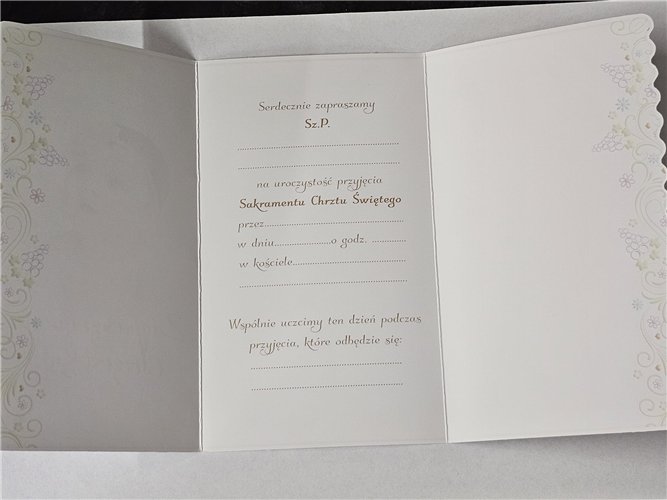 Serdecznie zapraszamy
Sz.P.
..................................................
..................................................
na uroczystość przyjęcia
Sakramentu Chrztu Świętego
przez............................................
w dniu..................o godz. ...........
w kościele....................................
..................................................
Wspólnie uczcimy ten dzień podczas
przyjęcia, które odbędzie się:
..................................................
..................................................